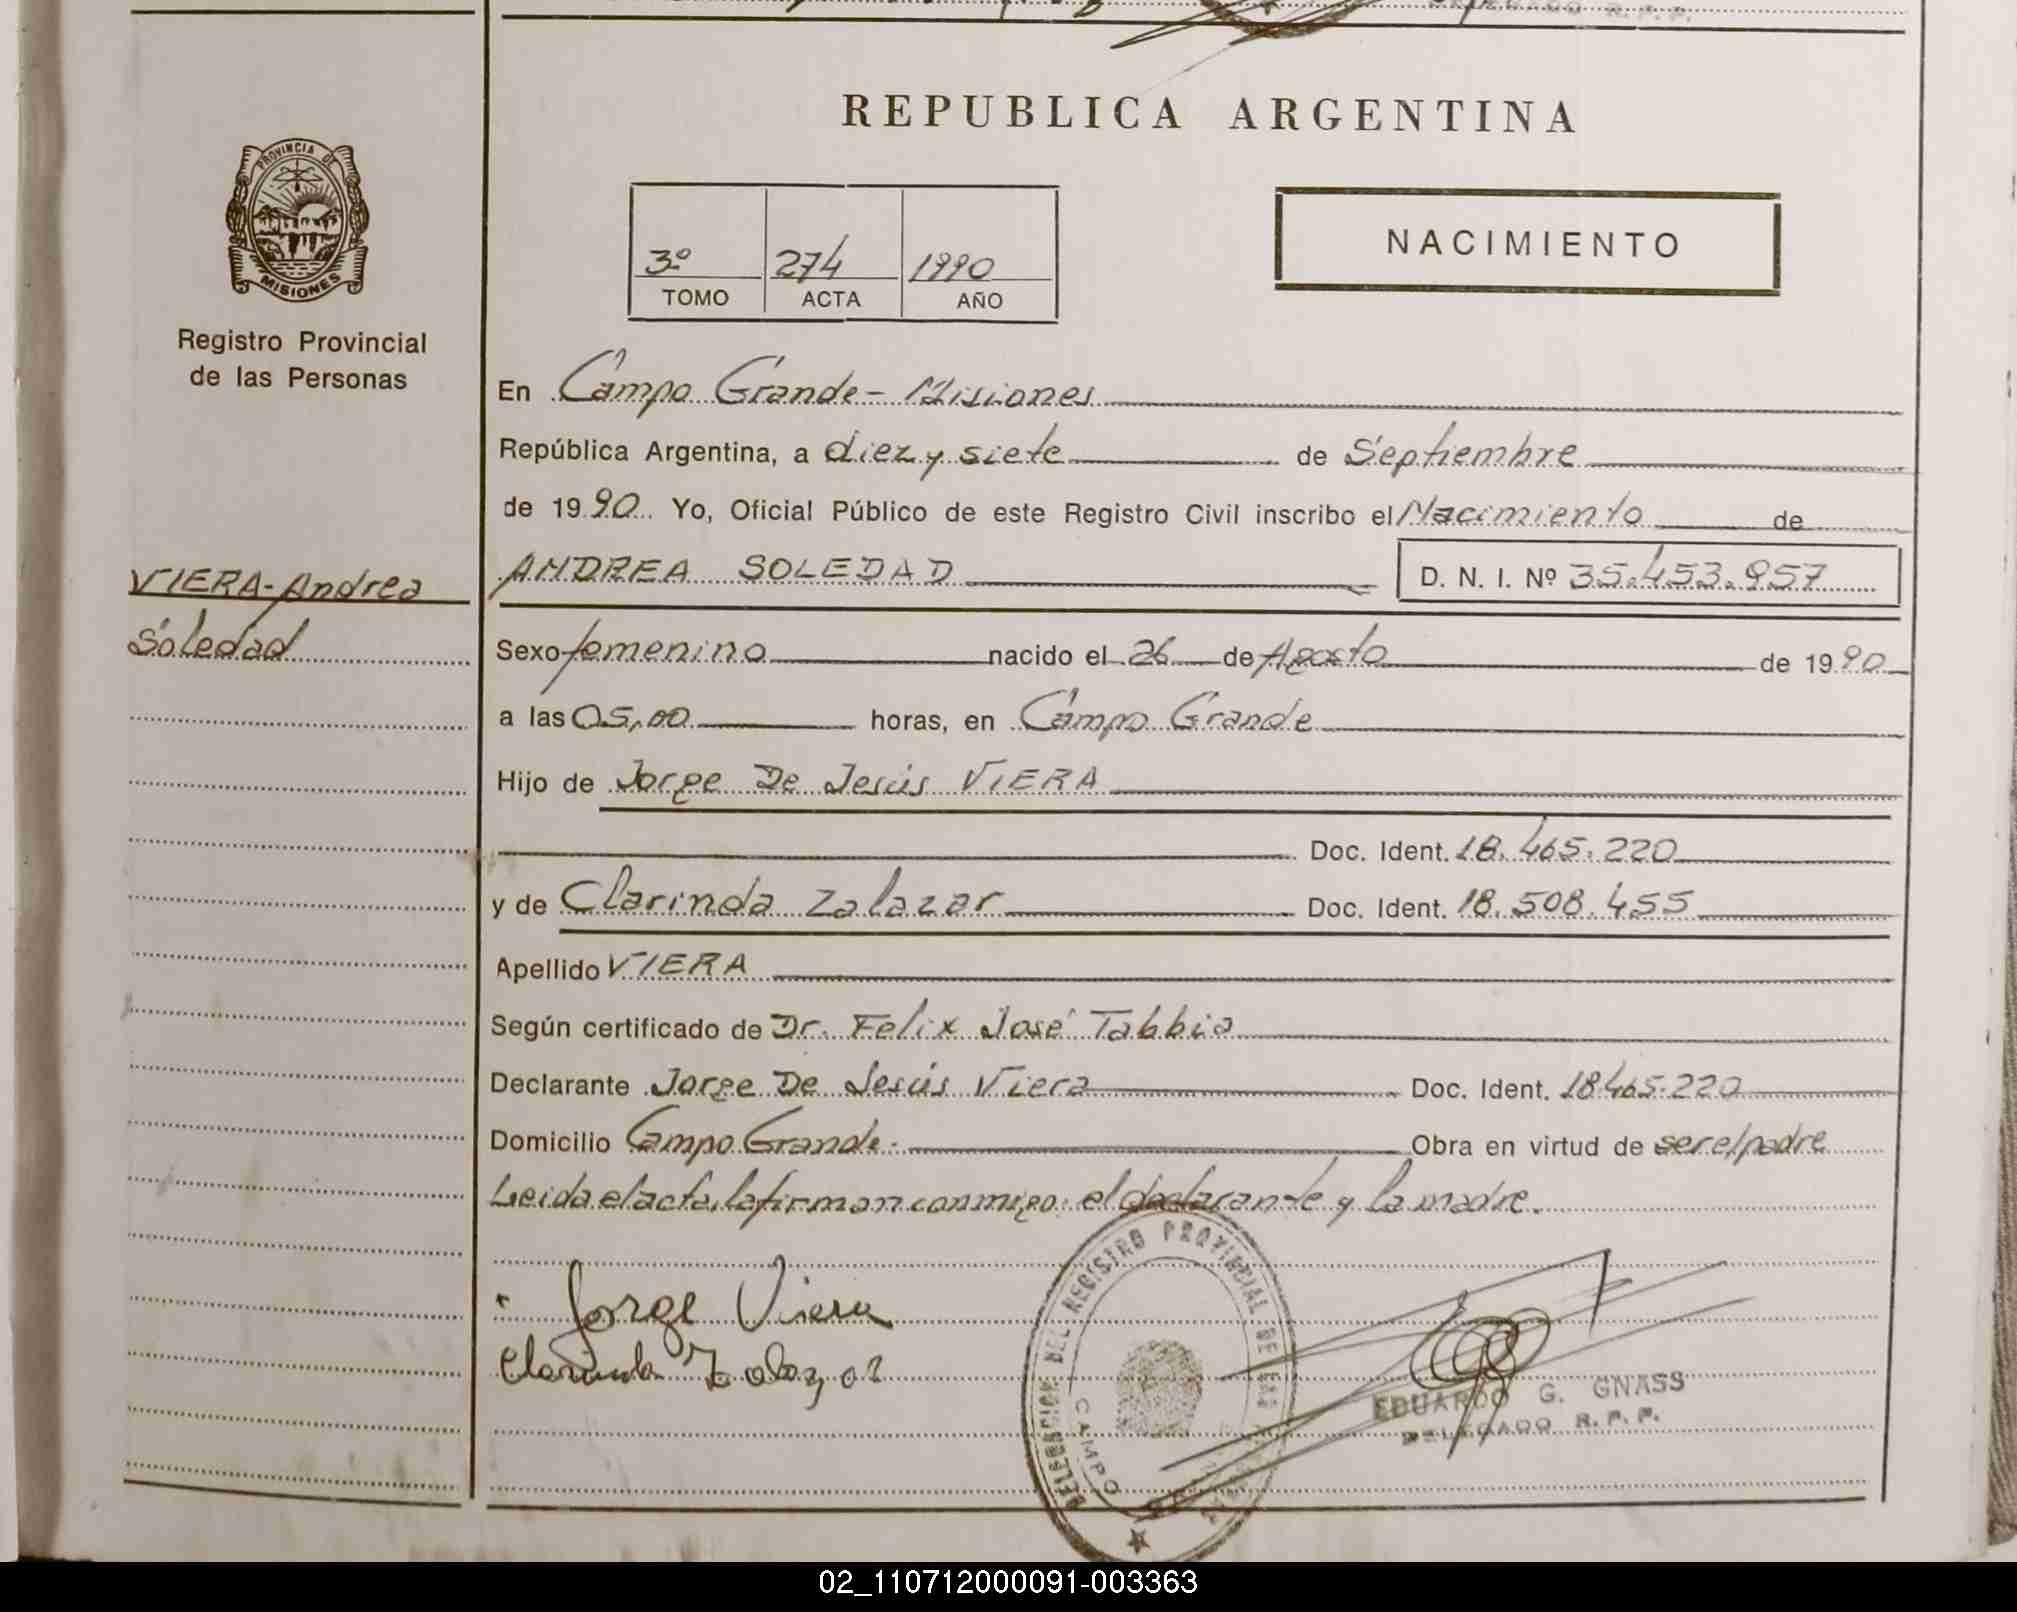 REPUBLICA ARGENTINA
PROVINCIA DE
MISIONES
Registro Provincial
de las Personas
3º 274 1990
TOMO ACTA AÑO
NACIMIENTO
En Campo Grande - Misiones
República Argentina, a diez y siete de Septiembre
de 1990. Yo, Oficial Público de este Registro Civil inscribo el Nacimiento de
VIERA - Andrea
Soledad
ANDREA SOLEDAD D. N. I. Nº 35.453.957
Sexo femenino nacido el 26 de Agosto de 1990
a las 05,00 horas, en Campo Grande
Hijo de Jorge De Jesús VIERA
Doc. Ident. 18.465.220
y de Clarinda Zalazar Doc. Ident. 18.508.455
Apellido VIERA
Según certificado de Dr. Felix José Tabbia
Declarante Jorge De Jesús Viera Doc. Ident. 18.465.220
Domicilio Campo Grande.- Obra en virtud de ser el padre
Leida el acta, la firman conmigo: el declarante y la madre.
Jorge Viera
Clarinda Zalazar
DELEGACION DEL REGISTRO PROVINCIAL DE LAS
CAMPO
EDUARDO G. GNASS
DELEGADO R. P. P.
02_110712000091-003363